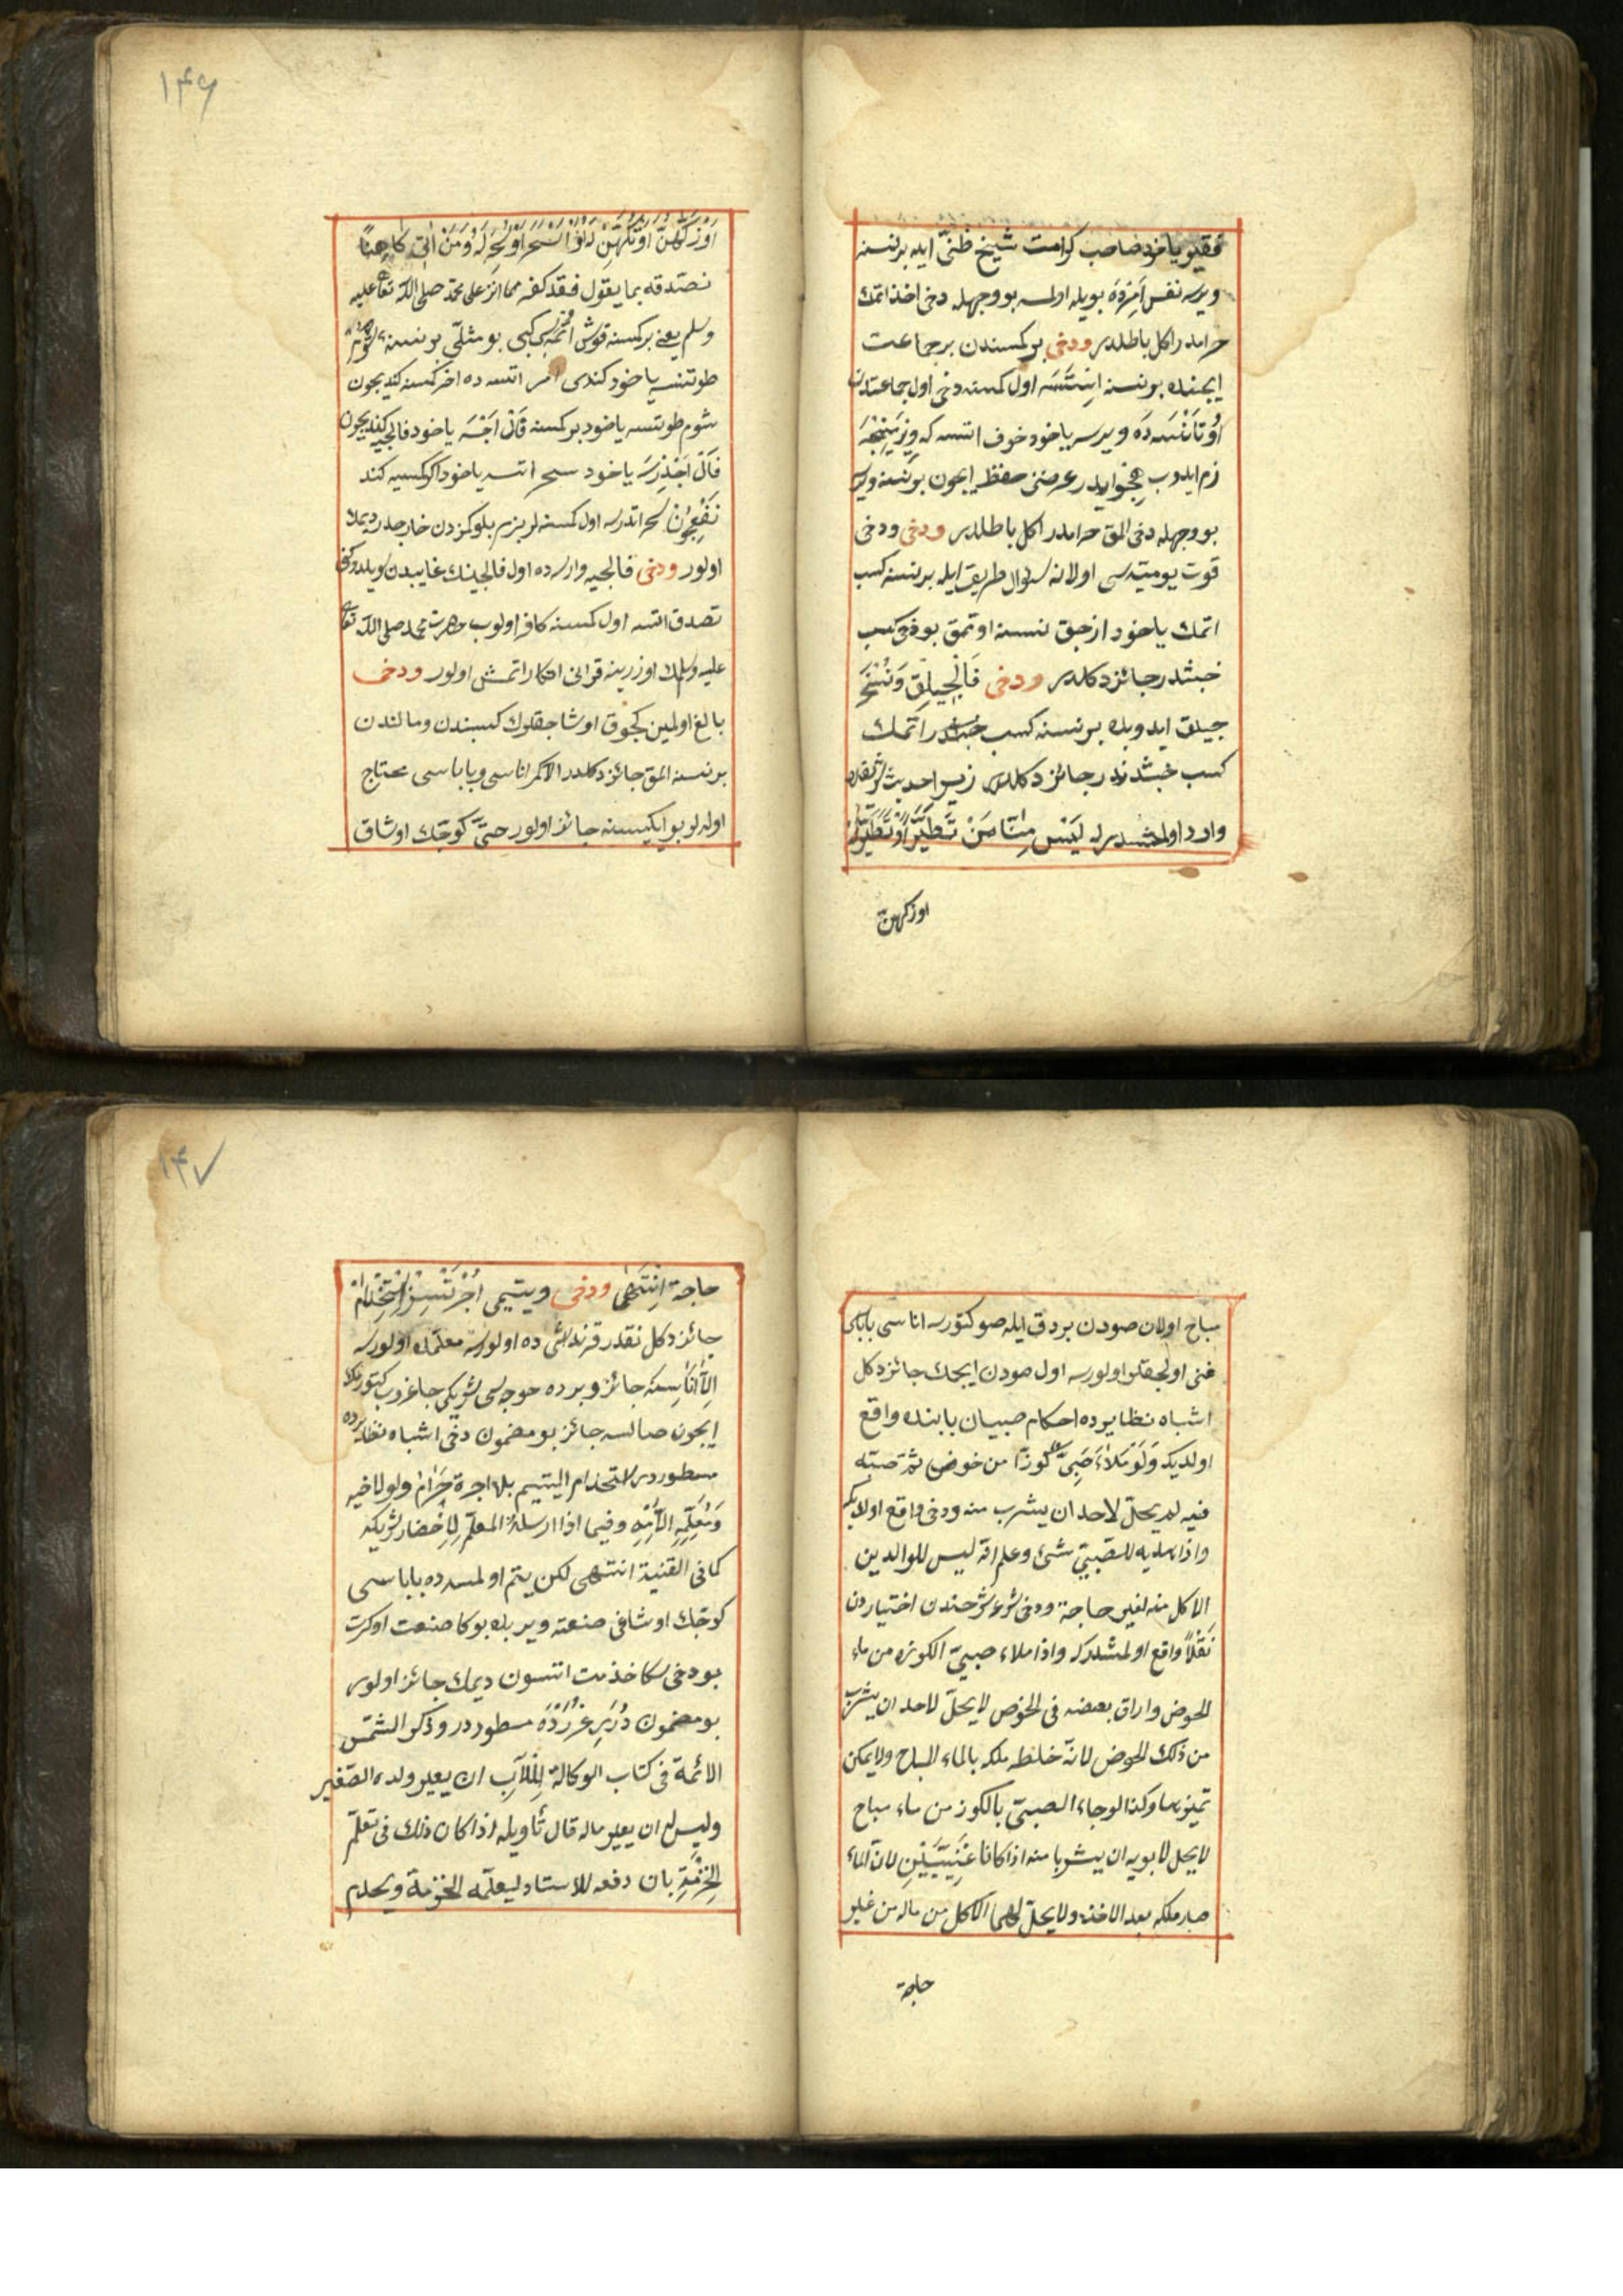 فقير ياخود صاحب كرامت شيخ ظنّى ايله برنسنه
ويرسه نفس امرده بويله اولمسه بو وجهله دخى اخذ اتمك
حرامدر اكل باطلدر ودخى بر كمسندن بر جماعت
ايچنده بر نسنه استسه اول كمسنه دخى اول جماعتدن
اوتانسه ده ويرسه ياخود خوف اتسه كه ويرمينجه
زم ايدوب هجو ايدر عرضنى حفظ ايچون بر نسنه ويرسه
بو وجهله دخى المق حرامدر اكل باطلدر ودخى ودخى
قوت يوميه سى اولانه سؤال طريق ايله برنسنه كسب
اتمك ياخود ازجق نسنه اوتمق بو دخى كسب
خبثدر جائز دكلدر ودخى فالجيلق ونسخه
جيلق ايدوبده برنسنه كسب اتمك
كسب خبثدندر جائز دكلدر زيرا حديث شريفده
وارد اولمشدر كه لَيْسَ مِنّا مَنْ تَطَيَّرَ اَوْ تُطُيِّرَ لَهُ
اوتكهن
١۴۶
اَوْ تَكَهَّنَ اَوْ تُكُهِّنَ لَهُ اَوْ سَحَرَ اَوْ سُحِرَ لَهُ وَمَنْ اَتى كاهِنًا
فصدقه بما يقول فقد كفر مما انزل على محمد صلى اللّه تعالى عليه
وسلم يعنى بر كمسنه قوش اتمه سى كبى بو مثللى بر نسنه شوم
طوتسه ياخود كندى امر اتسه ده اخر كمسنه كندیچون
شوم طوتسه ياخود بر كمسنه فال اچسه ياخود فالجيه كنديچون
فال اچدرسه ياخود سحر اتسه ياخود اول كمسيه كند
نفعيچون سحر اتدرسه اول كمسنه لر بزم بلوكمزدن خارجدر ديمك
اولور ودخى فالجيه وارسه ده اول فالجينك غايبدن سويلدوكنى
تصدق اتسه اول كمسنه كافر اولوب حضرت محمد صلى اللّه تعالى
عليه وسلمك اوزرينه قرانى انكار اتمش اولور ودخى
بالغ اولمين كچوق اوشاجقلرك كسبندن ومالندن
بر نسنه المق جائز دكلدر الا مكر اناسى وباباسى محتاج
اوله لر بو ايكيسنه جائز اولور حتّى كوچك اوشاق
مباح اولان صودن بردق ايله صو كتورسه اناسى باباسى
غنى اولجقلر اولورسه اول صودن ايچمك جائز دكل
اشباه نظايرده احكام صبيان بابنده واقع
اولديكه وَلَوْ مَلَأَ صَبِىٌّ كوزًا من حوض ثم صبّه
فيه لم يحلّ لاحد ان يشرب منه ودخى واقع اولديكه
واذا اهديه للصبىّ شئ وعلم انه ليس للوالدين
الاكل منه لغير حاجة ودخى شرعه شرحندن اختياردن
نَقْلًا واقع اولمشدر كه واذا ملاء صبىّ الكوزه من ماء
الحوض واراق بعضه فى الحوض لا يحلّ لاحد ان يشرب
من ذلك الحوض لانه خلطه ملكه بالماء المباح ولا يمكن
تميزها وكذا لو جاء الصبىّ بالكوز من ماء مباح
لا يحل لابويه ان يشربا منه اذا كانا غَنِيَّيْنِ لان الماء
صار ملكه بعد الاخذ ولا يحلّ لهما الاكل من ماله من غير
حاجة
١۴٧
حاجة اِنْتَهٰى ودخى ويتيمى اُجْرَتْسِزْ اِسْتِخْدام
جائز دكل نقدر قرنداشى ده اولورسه معلمده اولورسه
اِلّا اَناسِنَه جائز وبرده خوجه سى شريكى چاغروب كتورمك
ايچون صالسه جائز بو مضمون دخى اشباه نظايرده
مسطوردر استخدام اليتيم بلا اجرة حَرامٌ ولو لاخيه
وَمُعَلِّمِهِ اِلّا لِاُمِّهِ وفيما اذا ارسله المعلّم لِاِحْضار شريكه
كما فى القنية انتهى لكن يتيم اولمسه ده باباسى
كوچك اوشاغى صنعته ويربده بوكا صنعت اوكرت
بو دخى سكا خذمت اتسون ديمك جائز اولور
بو مضمون دُرَرِ غُرَرْدَه مسطوردر وذكر الشمس
الائمة فى كتاب الوكالة لِلْاَبِ ان يعير ولده الصغير
وليس له ان يعير ماله قال تأويله اذا كان ذلك فى تعلّم
الخِرْفَةِ بان دفعه للاستاد ليعلّمه الخرفة ويخدم